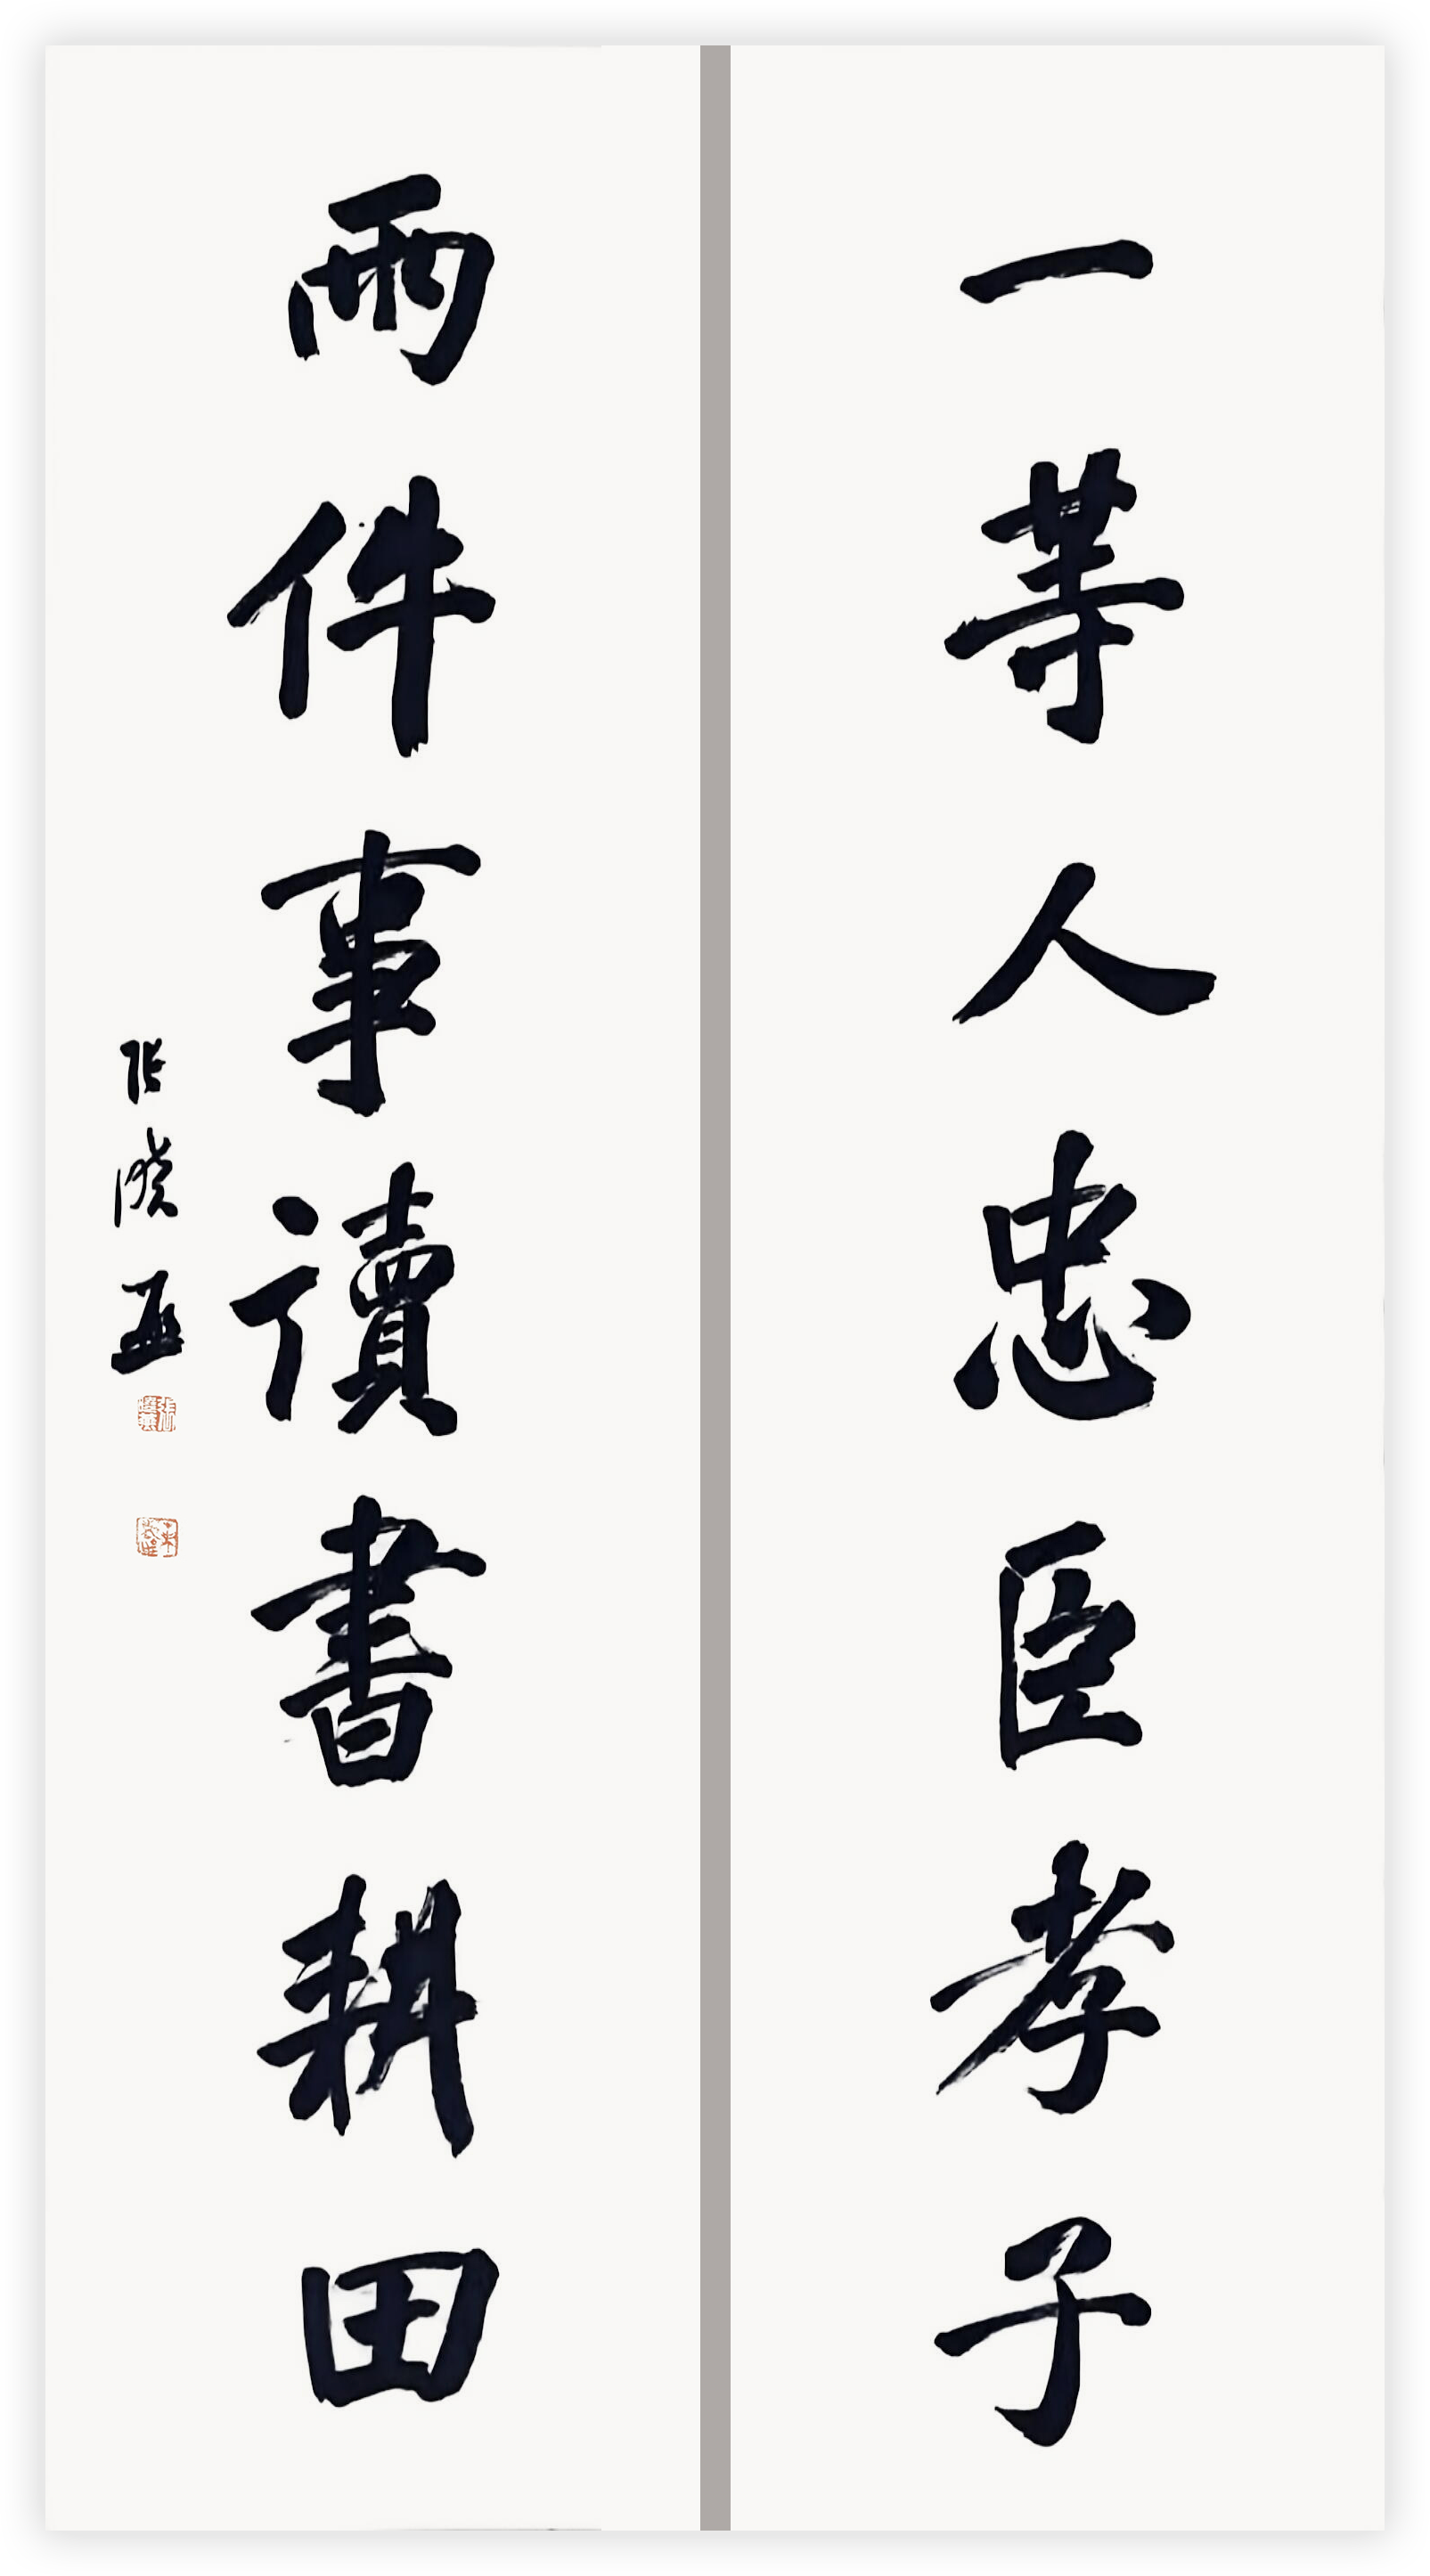 一等人忠臣孝子
兩件事讀書耕田
张晓